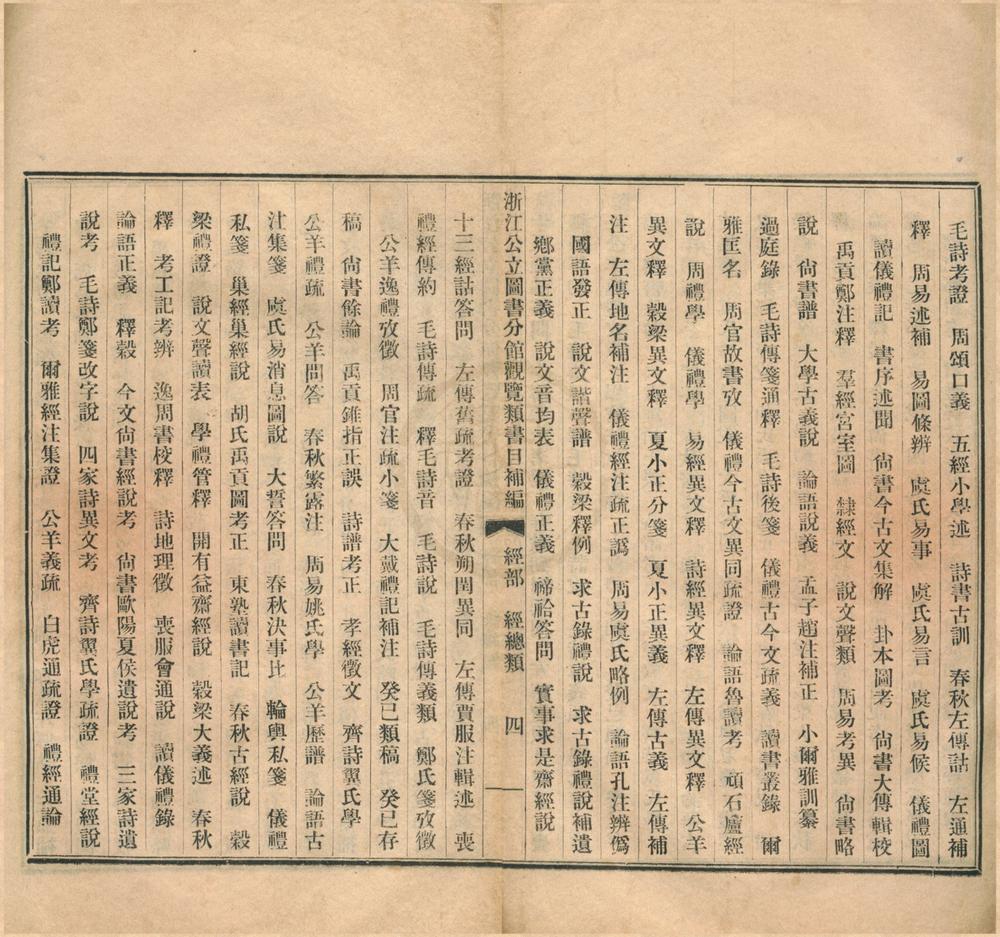 毛詩考證　周頌口義　五經小學述　詩書古訓　春秋左傳詁　左通補
釋　周易述補　易圖條辨　虞氏易事　虞氏易言　虞氏易候　儀禮圖
讀儀禮記　書序述聞　尙書今古文集解　卦本圖考　尙書大傳輯校
禹貢鄭注釋　羣經宮室圖　隸經文　說文聲類　周易考異　尙書略
說　尙書譜　大學古義說　論語說義　孟子趙注補正　小爾雅訓纂
過庭錄　毛詩傳箋通釋　毛詩後箋　儀禮古今文疏義　讀書叢錄　爾
雅匡名　周官故書攷　儀禮今古文異同疏證　論語魯讀考　頑石廬經
說　周禮學　儀禮學　易經異文釋　詩經異文釋　左傳異文釋　公羊
異文釋　穀梁異文釋　夏小正分箋　夏小正異義　左傳古義　左傳補
注　左傳地名補注　儀禮經注疏正譌　周易虞氏略例　論語孔注辨僞
國語發正　說文諧聲譜　穀梁釋例　求古錄禮說　求古錄禮說補遺
鄉黨正義　說文音均表　儀禮正義　禘祫答問　實事求是齋經說
浙江公立圖書分館觀覽類書目補編　經部　經總類　四
十三經詁答問　左傳舊疏考證　春秋朔閏異同　左傳賈服注輯述　喪
禮經傳約　毛詩傳疏　釋毛詩音　毛詩說　毛詩傳義類　鄭氏箋攷徵
公羊逸禮攷徵　周官注疏小箋　大戴禮記補注　癸巳類稿　癸巳存
稿　尙書餘論　禹貢錐指正誤　詩譜考正　孝經徵文　齊詩翼氏學
公羊禮疏　公羊問答　春秋繁露注　周易姚氏學　公羊歷譜　論語古
注集箋　虞氏易消息圖說　大誓答問　春秋決事比　輪輿私箋　儀禮
私箋　巢經巢經說　胡氏禹貢圖考正　東塾讀書記　春秋古經說　穀
梁禮證　說文聲讀表　學禮管釋　開有益齋經說　穀梁大義述　春秋
釋　考工記考辨　逸周書校釋　詩地理徵　喪服會通說　讀儀禮錄
論語正義　釋穀　今文尙書經說考　尙書歐陽夏侯遺說考　三家詩遺
說考　毛詩鄭箋改字說　四家詩異文考　齊詩翼氏學疏證　禮堂經說
禮記鄭讀考　爾雅經注集證　公羊義疏　白虎通疏證　禮經通論